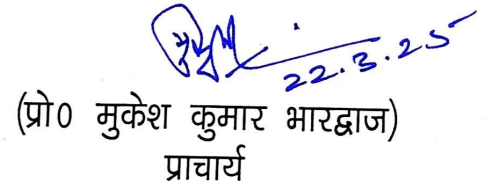 22.3.25
(प्रो0 मुकेश कुमार भारद्वाज)
प्राचार्य